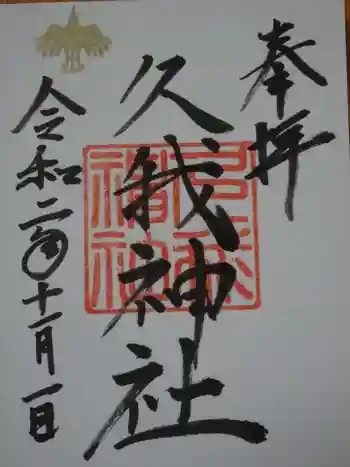 奉拝
久我神社
令和二年十一月一日